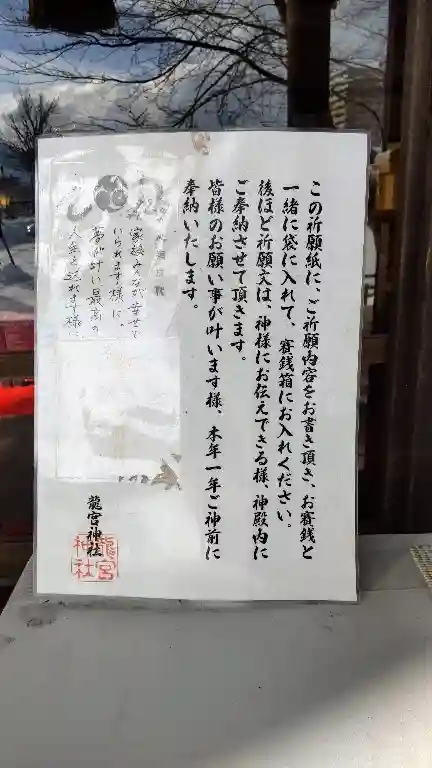 この祈願紙に、ご祈願内容をお書き頂き、お賽銭と
一緒に袋に入れて、賽銭箱にお入れください。
後ほど祈願文は、神様にお伝えできる様、神殿内に
ご奉納させて頂きます。
皆様のお願い事が叶います様、本年一年ご神前に
奉納いたします。
家族みんなが幸せで
いられます様に。
夢が叶い最高の
人生を送れます様に
龍宮神社
龍宮
神社